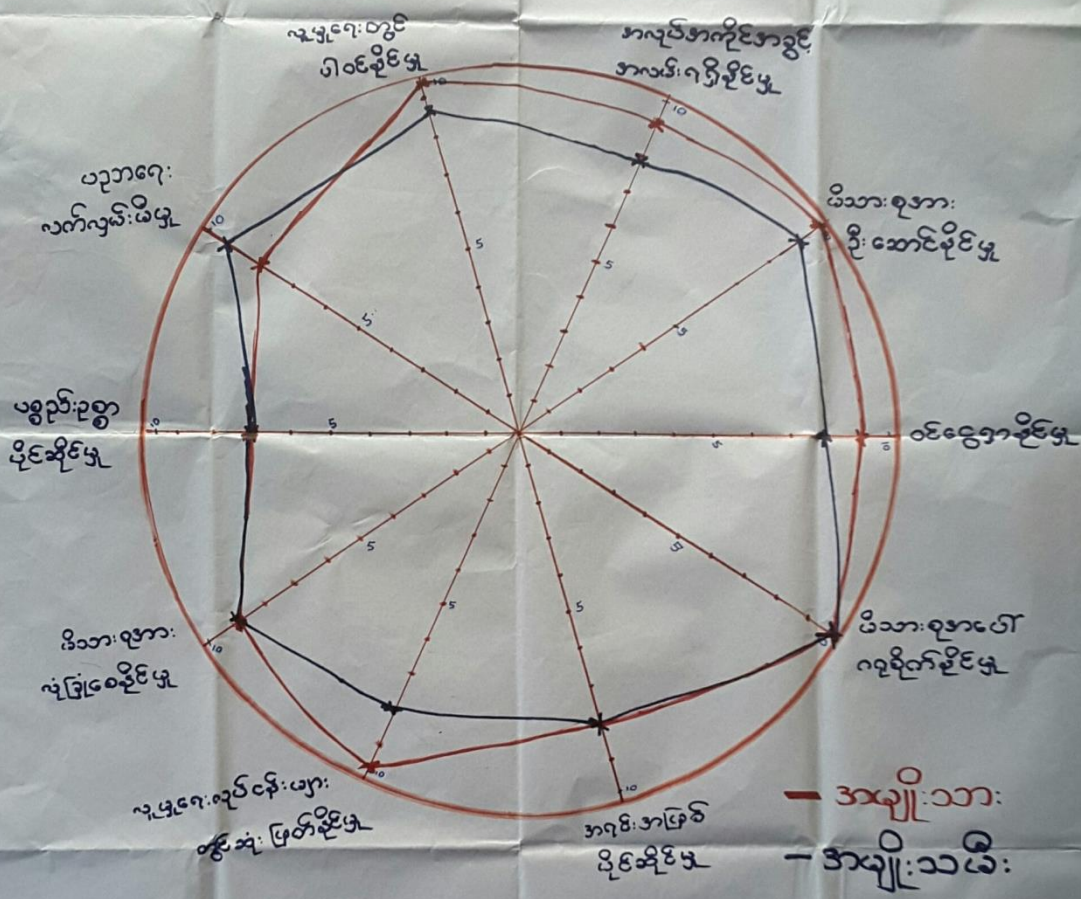 လူမှုရေးတွင်
ပါဝင်နိုင်မှု
အလုပ်အကိုင်အခွင့်
အလမ်းရရှိနိုင်မှု
မိသားစုအား
ဦးဆောင်နိုင်မှု
ဝင်ငွေရှာနိုင်မှု
မိသားစုအပေါ်
ဂရုစိုက်နိုင်မှု
အရင်းအမြစ်
ပိုင်ဆိုင်မှု
လူမှုရေးလုပ်ငန်းများ
တွင်ဆုံးဖြတ်နိုင်မှု
မိသားစုအား
လုံခြုံစေနိုင်မှု
ပစ္စည်းဥစ္စာ
ပိုင်ဆိုင်မှု
ပညာရေး
လက်လှမ်းမီမှု
10
10
10
10
10
10
10
5
5
5
5
5
5
5
5
5
5
အမျိုးသား
အမျိုးသမီး